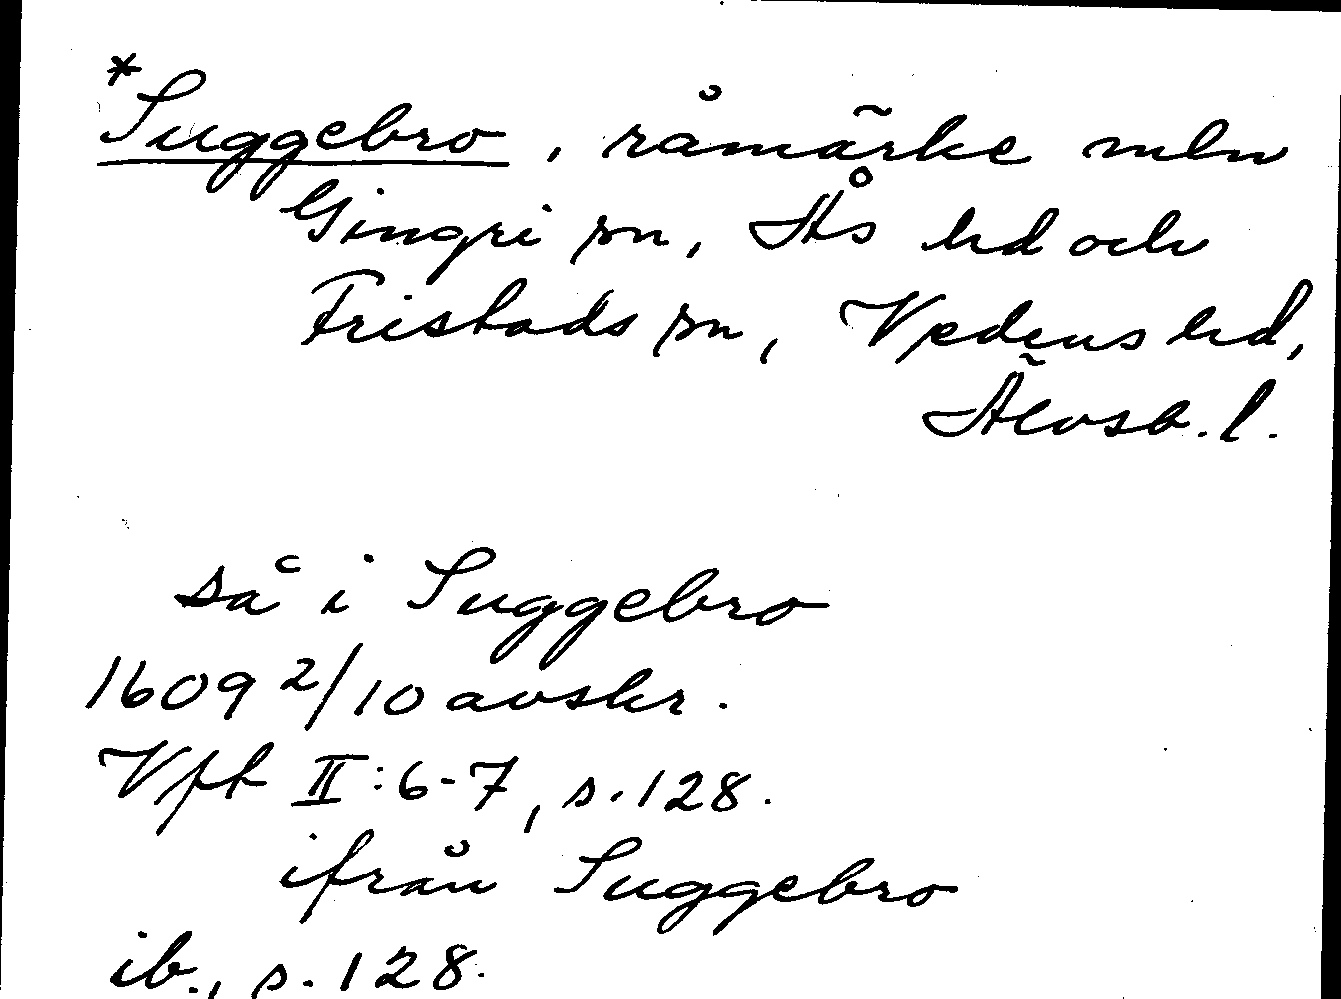 *Suggebro, råmärke mln
Gingri sn, Ås hd och
Fristads sn, Vedens hd,
Älvsb. l.
så i Suggebro
1609 2/10 avskr.
Vft II:6-7, s. 128.
ifrån Suggebro
ib., s. 128.